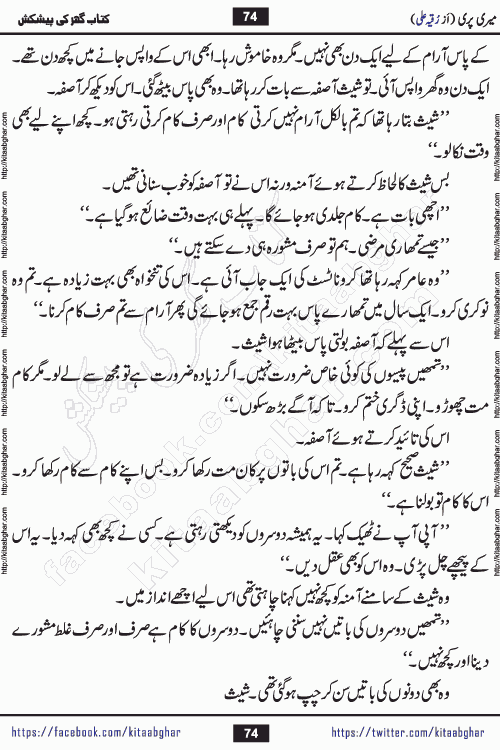 میری پری (از رُقیہ علی) 74 کتاب گھر کی پیشکش
کے پاس آرام کے لیے ایک دن بھی نہیں۔ مگر وہ خاموش رہا۔ ابھی اس کے واپس جانے میں کچھ دن تھے۔
ایک دن وہ گھر واپس آئی۔ تو شیث آصفہ سے بات کر رہا تھا۔ وہ بھی پاس بیٹھ گئی۔ اس کو دیکھ کر آصفہ۔
’’شیث بتا رہا تھا کہ تم بالکل آرام نہیں کرتی کام اور صرف کام کرتی رہتی ہو۔ کچھ اپنے لیے بھی
وقت نکالو۔‘‘
بس شیث کا لحاظ کرتے ہوئے آمنہ ورنہ اس نے تو آصفہ کو خوب سنانی تھیں۔
’’اچھی بات ہے۔ کام جلدی ہو جائے گا۔ پہلے ہی بہت وقت ضائع ہو گیا ہے۔‘‘
’’جیسے تمھاری مرضی۔ ہم تو صرف مشورہ ہی دے سکتے ہیں۔‘‘
’’وہ عامر کہہ رہا تھا کرونا ٹسٹ کی ایک جاب آئی ہے۔ اس کی تنخواہ بھی بہت زیادہ ہے۔ تم وہ
نوکری کرو۔ ایک سال میں تمھارے پاس بہت رقم جمع ہو جائے گی پھر آرام سے تم صرف کام کرنا۔‘‘
اس سے پہلے کہ آصفہ بولتی پاس بیٹھا ہوا شیث۔
’’تمھیں پیسوں کی کوئی خاص ضرورت نہیں۔ اگر زیادہ ضرورت ہے تو مجھ سے لے لو۔ مگر کام
مت چھوڑو۔ اپنی ڈگری ختم کرو۔ تا کہ آگے بڑھ سکوں۔‘‘
اس کی تائید کرتے ہوئے آصفہ۔
’’شیث صحیح کہہ رہا ہے۔ تم اس کی باتوں پر کان مت رکھا کرو۔ بس اپنے کام سے کام رکھا کرو۔
اس کا کام تو بولنا ہے۔‘‘
’’آپی آپ نے ٹھیک کہا۔ یہ ہمیشہ دوسروں کو دیکھتی رہتی ہے۔ کسی نے کچھ بھی کہہ دیا۔ یہ اس
کے پیچھے چل پڑی۔ وہ اس کو بھی عقل دیں۔‘‘
وہ شیث کے سامنے آمنہ کو کچھ نہیں کہنا چاہتی تھی اس لیے اچھے انداز میں۔
’’تمھیں دوسروں کی باتیں نہیں سننی چاہئیں۔ دوسروں کا کام ہے صرف اور صرف غلط مشورے
دینا اور کچھ نہیں۔‘‘
وہ بھی دونوں کی باتیں سن کر چپ ہو گئی تھی۔ شیث
https://facebook.com/kitaabghar 74 https://twitter.com/kitaabghar
http://kitaabghar.com
کتاب گھر کی پیشکش
kitaabghar.com
facebook.com/kitaabghar